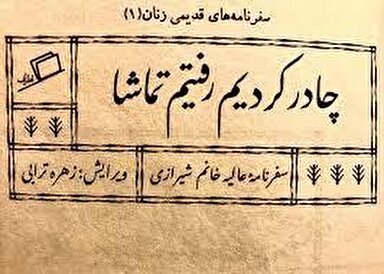 سفرنامه‌های قدیمی زنان (۱)
چادر کردیم رفتیم تماشا
سفرنامهٔ عالیه خانم شیرازی
ویرایش: زهره ترابی